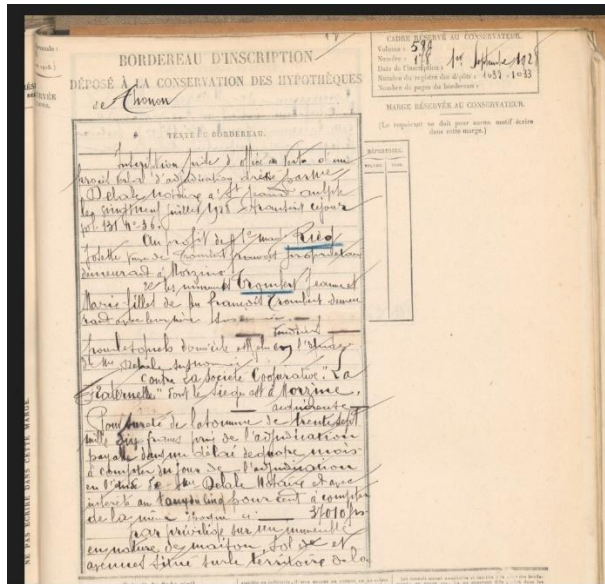 BORDEREAU D'INSCRIPTION
DÉPOSÉ À LA CONSERVATION DES HYPOTHÈQUES
de Thonon
CADRE RÉSERVÉ AU CONSERVATEUR.
Volume : 599
Numéro : 178
Date de l'inscription : 1er Septembre 1928
Numéro du registre des dépôts : 1032-1033
Nombre de pages du bordereau :
MARGE RÉSERVÉE AU CONSERVATEUR.
(Le requérant ne doit pour aucun motif écrire
dans cette marge.)
RÉPERTOIRE.
TEXTE DU BORDEREAU.
Inscription prise d'office en vertu d'un
procès verbal d'adjudication dressé par Me
Delale notaire à St Jeand'aulph
le vingt neuf juillet 1928 transcrit ce jour
vol 131 No 36.
Au profit de 1o mad
Josette veuve de Trombert françois propriétaire
demeurant à Morzine
2o les mineures Trombert Jeanne et
Marie filles de fu françois Trombert demeu
rant avec leur mère
vendeurs
pour lesquels domicile est élu en l'étude
de Me Delale susnommé
Contre La Société Coopérative "La
Fraternelle" dont le siège est à Morzine,
acquéreure
Pour sûreté de la somme de trente sept
mille dix francs prix de l'adjudication
payable dans un délai de quatre mois
à compter du jour de l'adjudication
en l'étude de Me Delale Notaire et avec
intérêts au taux du cinq pour cent à compter
de la même époque ci 37010 frs
par privilège sur un immeuble
en nature de maison, sol et
avenues situé sur le territoire de la
NE PAS ÉCRIRE DANS CETTE MARGE